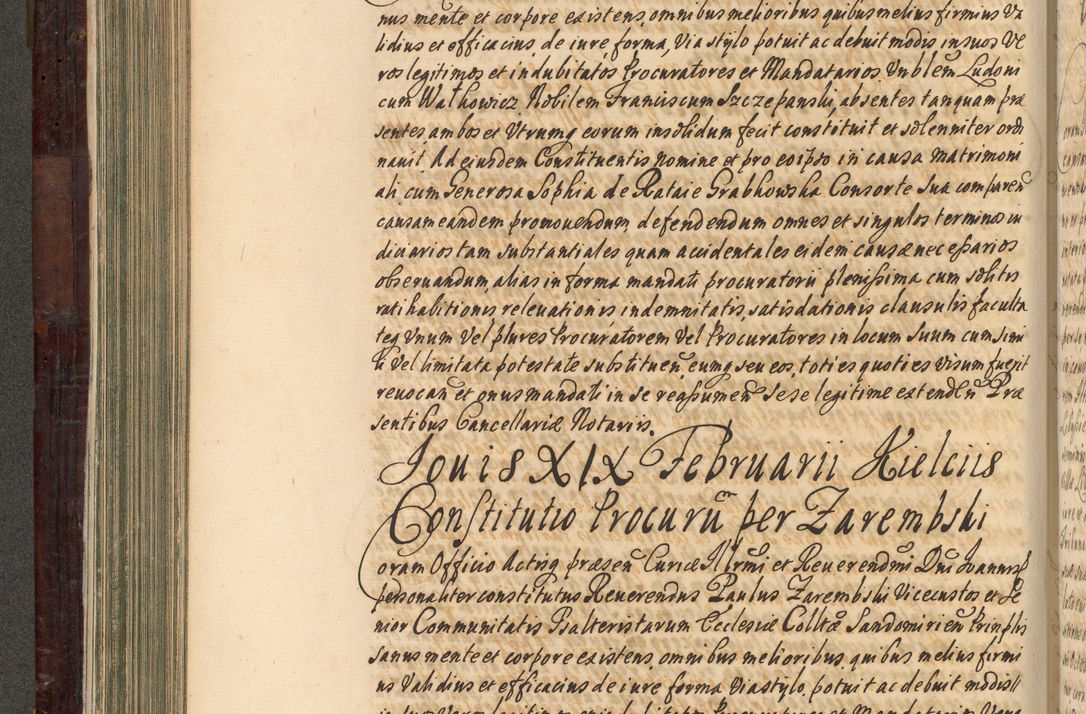 nus mente et corpore existens, omnibus melioribus quibus melius firmius Va
lidius et efficacius, de iure forma, Via stylo potuit ac debuit modis in suos Ve
ros legitimos et indubitatos Procuratores et Mandatarios Vnblem Ludoui
cum Walkowicz Nobilem Franciscum Szczepanski, absentes tanquam præ
sentes, ambos et Vtrumq eorum insolidum fecit constituit et solenniter ordi
nauit, Ad eiusdem Constituentis nomine et pro eo ipso in causa Matrimoni
ali cum Generosa Sophia de Rataie Grabkowska Consorte Sua comparen̄
causam eandem promouendum defendendum omnes et singulos terminos iu
diciarios tam substantiales quam accidentales eidem causæ necessarios
obseruandum alias in forma mandati procuratorii plenissima cum solitis
ratihabitionis releuationis indemnitatis, satisdationis clausulis faculta
teq Vnum Vel plures Procuratorem Vel Procuratores in locum Suum cum simi
li Vel limitata potestate substituen̄, eumq seu eos, toties quoties visum fuerit
reuocan̄ et onus mandati in se reassumen̄ Sese legitime extenden̄ Præ
sentibus Cancellariæ Notariis.
Jouis XIX Februarii Kielciis
Constitutio Procurūm per Zarembski
Coram Officio Actisq præsen̄ Curiæ Illrmi et Reuerendmi Dni Joannis
personaliter constitutus Reuerendus Paulus Zarembski Vicecustos et Se
nior Communitatis Psalteristarum Ecclesiæ Colltæ Sandomirien̄ Prinplis
Sanus mente et corpore existens, omnibus melioribus, quibus melius firmi
us Validius et efficacius de iure forma Via stylo, potuit ac debuit modis